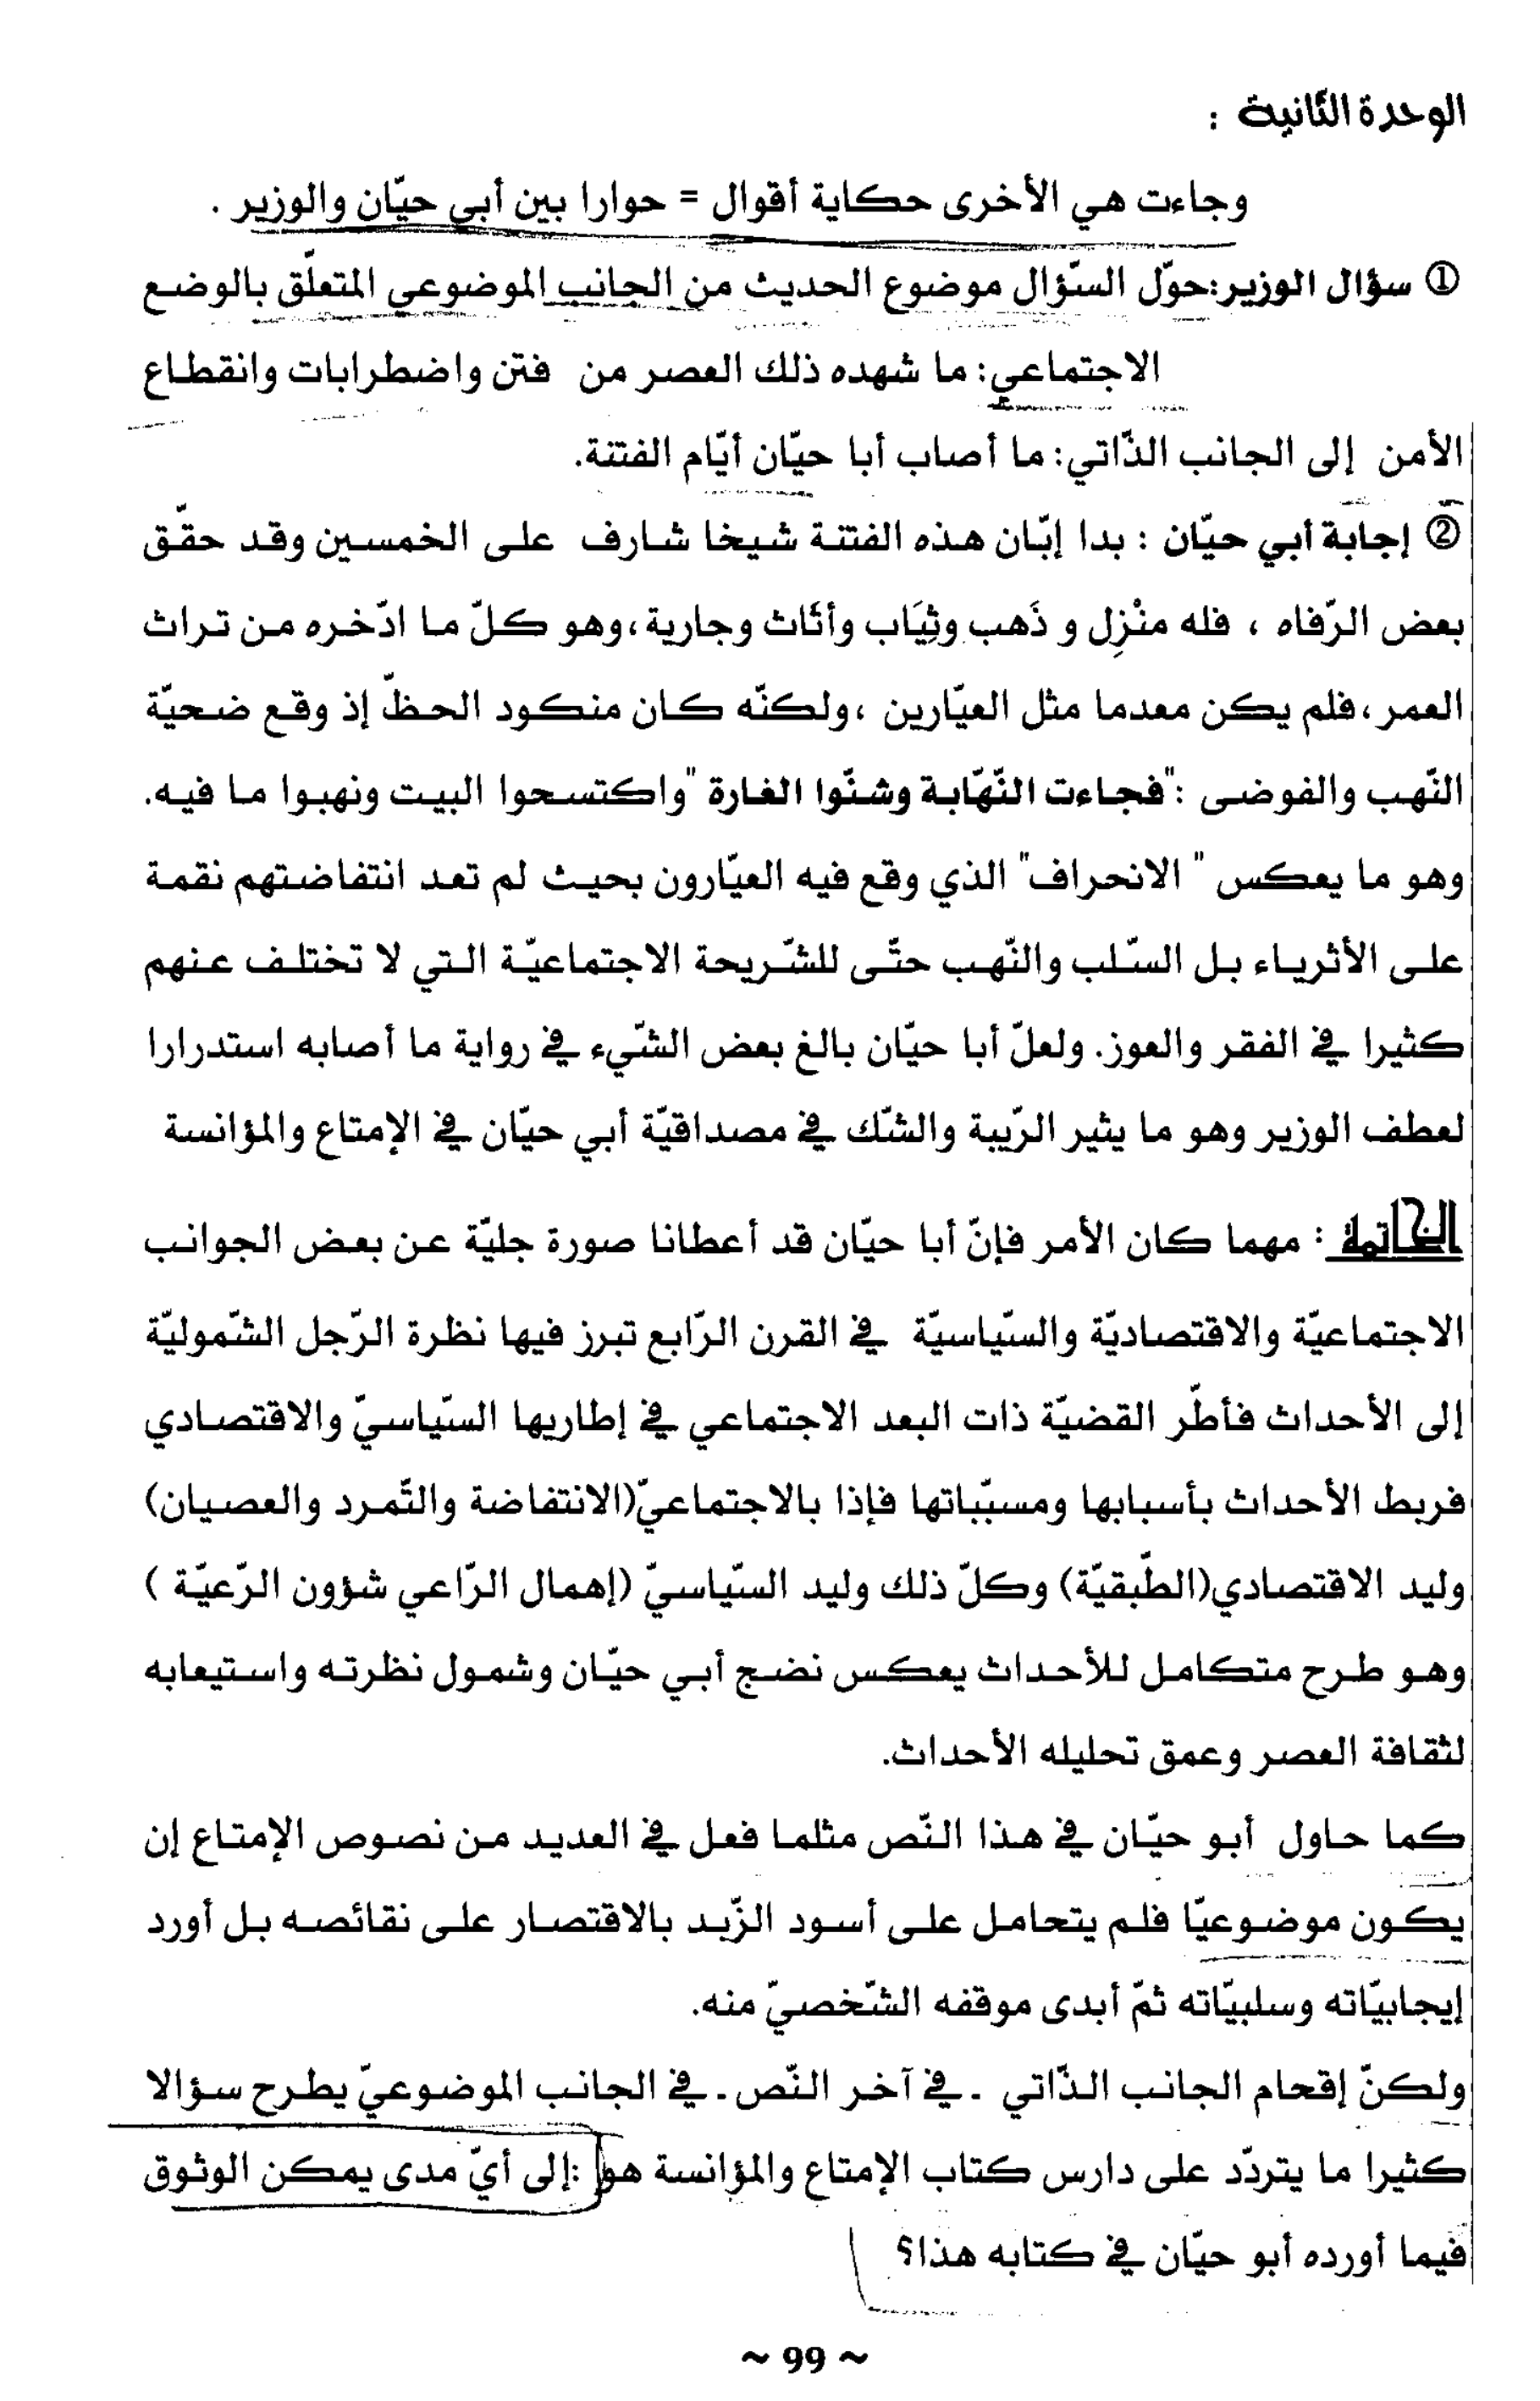 الوحدة الثّانية :
وجاءت هي الأخرى حكاية أقوال = حوارا بين أبي حيّان والوزير .
① سؤال الوزير:حوّل السّؤال موضوع الحديث من الجانب الموضوعي المتعلّق بالوضع
الاجتماعي: ما شهده ذلك العصر من فتن واضطرابات وانقطاع
الأمن إلى الجانب الذّاتي: ما أصاب أبا حيّان أيّام الفتنة.
② إجابة أبي حيّان : بدا إبّان هذه الفتنة شيخا شارف على الخمسين وقد حقّق
بعض الرّفاه ، فله منْزِل و ذَهب وثِيَاب وأثَاث وجارية،وهو كلّ ما ادّخره من تراث
العمر،فلم يكن معدما مثل العيّارين ،ولكنّه كان منكود الحظّ إذ وقع ضحيّة
النّهب والفوضى :"فجاءت النّهّابة وشنّوا الغارة "واكتسحوا البيت ونهبوا ما فيه.
وهو ما يعكس " الانحراف" الذي وقع فيه العيّارون بحيث لم تعد انتفاضتهم نقمة
على الأثرياء بل السّلب والنّهب حتّى للشّريحة الاجتماعيّة التي لا تختلف عنهم
كثيرا في الفقر والعوز. ولعلّ أبا حيّان بالغ بعض الشّيء في رواية ما أصابه استدرارا
لعطف الوزير وهو ما يثير الرّيبة والشّك في مصداقيّة أبي حيّان في الإمتاع والمؤانسة
الخاتمة : مهما كان الأمر فإنّ أبا حيّان قد أعطانا صورة جليّة عن بعض الجوانب
الاجتماعيّة والاقتصاديّة والسّياسيّة في القرن الرّابع تبرز فيها نظرة الرّجل الشّموليّة
إلى الأحداث فأطّر القضيّة ذات البعد الاجتماعي في إطاريها السّياسيّ والاقتصادي
فربط الأحداث بأسبابها ومسبّباتها فإذا بالاجتماعيّ(الانتفاضة والتّمرد والعصيان)
وليد الاقتصادي(الطّبقيّة) وكلّ ذلك وليد السّياسيّ (إهمال الرّاعي شؤون الرّعيّة )
وهو طرح متكامل للأحداث يعكس نضج أبي حيّان وشمول نظرته واستيعابه
لثقافة العصر وعمق تحليله الأحداث.
كما حاول أبو حيّان في هذا النّص مثلما فعل في العديد من نصوص الإمتاع إن
يكون موضوعيّا فلم يتحامل على أسود الزّبد بالاقتصار على نقائصه بل أورد
إيجابيّاته وسلبيّاته ثمّ أبدى موقفه الشّخصيّ منه.
ولكنّ إقحام الجانب الذّاتي - في آخر النّص - في الجانب الموضوعيّ يطرح سؤالا
كثيرا ما يتردّد على دارس كتاب الإمتاع والمؤانسة هو :إلى أيّ مدى يمكن الوثوق
فيما أورده أبو حيّان في كتابه هذا؟
~ 99 ~